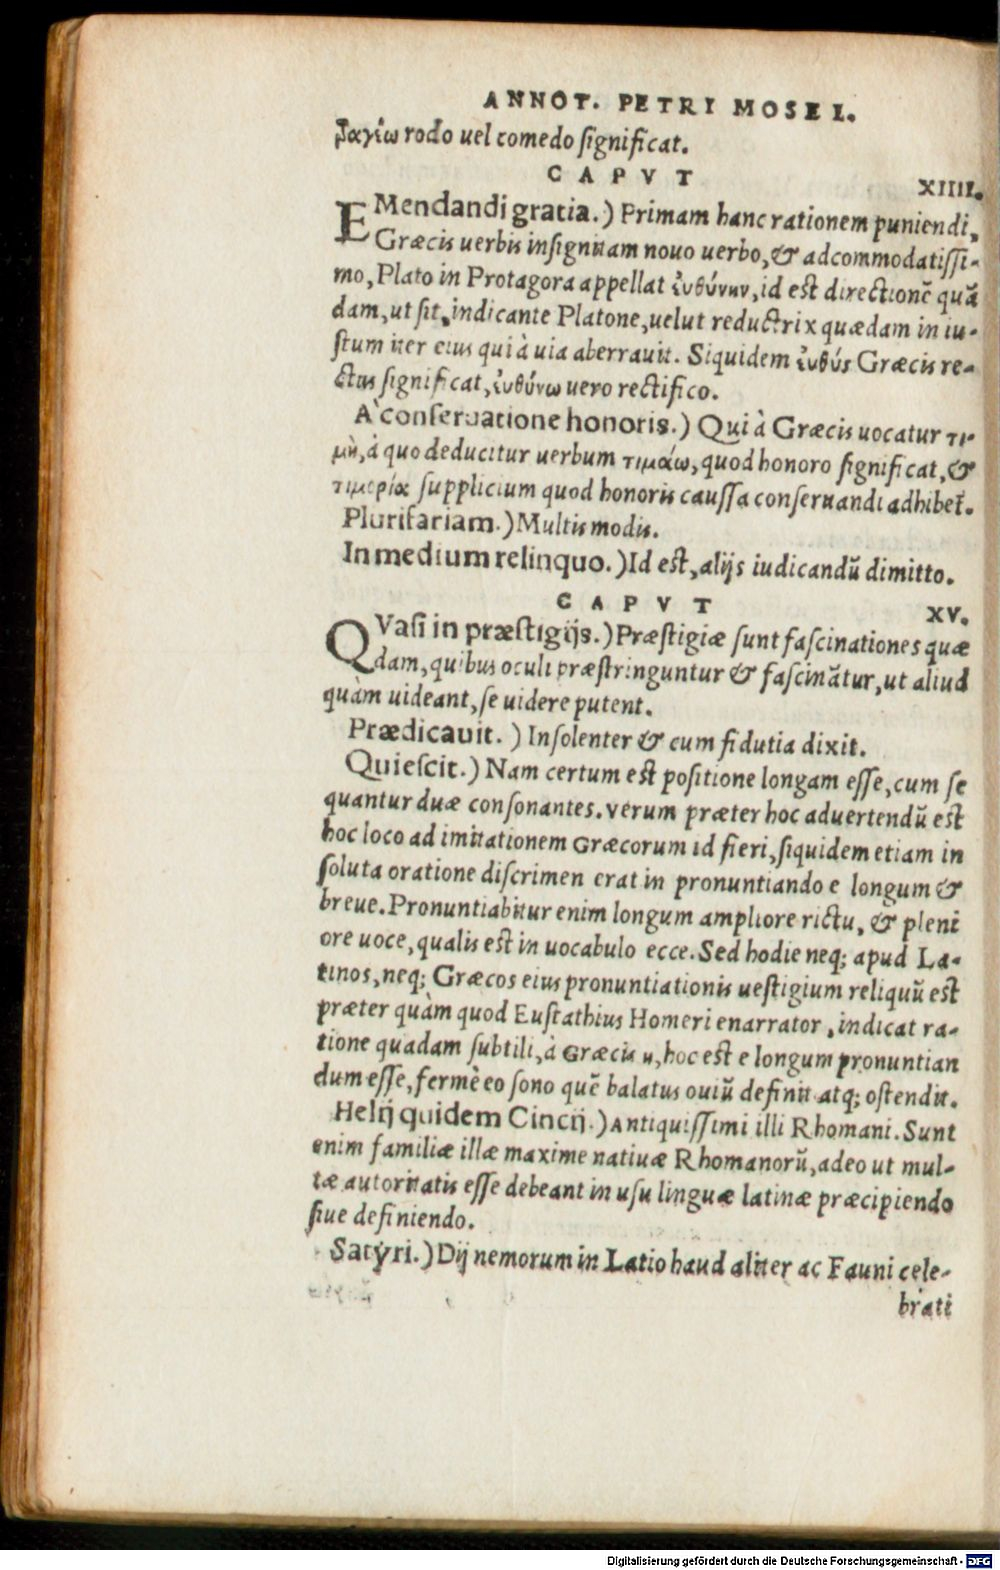 ANNOT. PETRI MOSEL.
φαγίω rodo uel comedo ſignificat.
CAPVT XIIII.
EMendandi gratia.) Primam hanc rationem puniendi,
Græcis uerbis inſignitam nouo uerbo, & adcommodatiſſi-
mo, Plato in Protagora appellat ἐυθύνην, id eſt directionē quā
dam, ut ſit, indicante Platone, uelut reductrix quædam in iu-
ſtum iter eius qui à uia aberrauit. Siquidem ἐυθύς Græcis re-
ctus ſignificat, ἐυθύνω uero rectifico.
A' conſeruatione honoris.) Qui à Græcis uocatur τι-
μὴ, à quo deducitur uerbum τιμάω, quod honoro ſignificat, &
τιμορία ſupplicium quod honoris cauſſa conſeruandi adhibet̄.
Plurifariam.) Multis modis.
In medium relinquo.) Id eſt, alijs iudicandū dimitto.
CAPVT XV.
QVaſi in præſtigijs.) Præſtigiæ ſunt faſcinationes quæ
dam, quibus oculi præſtringuntur & faſcināt​ur, ut aliud
quàm uideant, ſe uidere putent.
Prædicauit.) Inſolenter & cum fidutia dixit.
Quieſcit.) Nam certum eſt poſitione longam eſſe, cum ſe
quantur duæ conſonantes. verum præter hoc aduertendū eſt
hoc loco ad imitationem Græcorum id fieri, ſiquidem etiam in
ſoluta oratione diſcrimen erat in pronuntiando e longum &
breue. Pronuntiabitur enim longum ampliore rictu, & pleni
ore uoce, qualis eſt in uocabulo ecce. Sed hodie neq; apud La-
tinos, neq; Græcos eius pronuntiationis ueſtigium reliquū eſt
præter quàm quod Euſtathius Homeri enarrator, indicat ra-
tione quadam ſubtili, à Græcis η, hoc eſt e longum pronuntian
dum eſſe, fermè eo ſono quē balatus ouiū definit atq; oſtendit.
Helij quidem Cincij.) Antiquiſſimi illi Rhomani. Sunt
enim familiæ illæ maxime natiuæ Rhomanorū, adeo ut mul-
tæ autoritatis eſſe debeant in uſu linguæ latinæ præcipiendo
ſiue definiendo.
Satyri.) Dij nemorum in Latio haud aliter ac Fauni cele-
brati
Digitalisierung gefördert durch die Deutsche Forschungsgemeinschaft - DFG